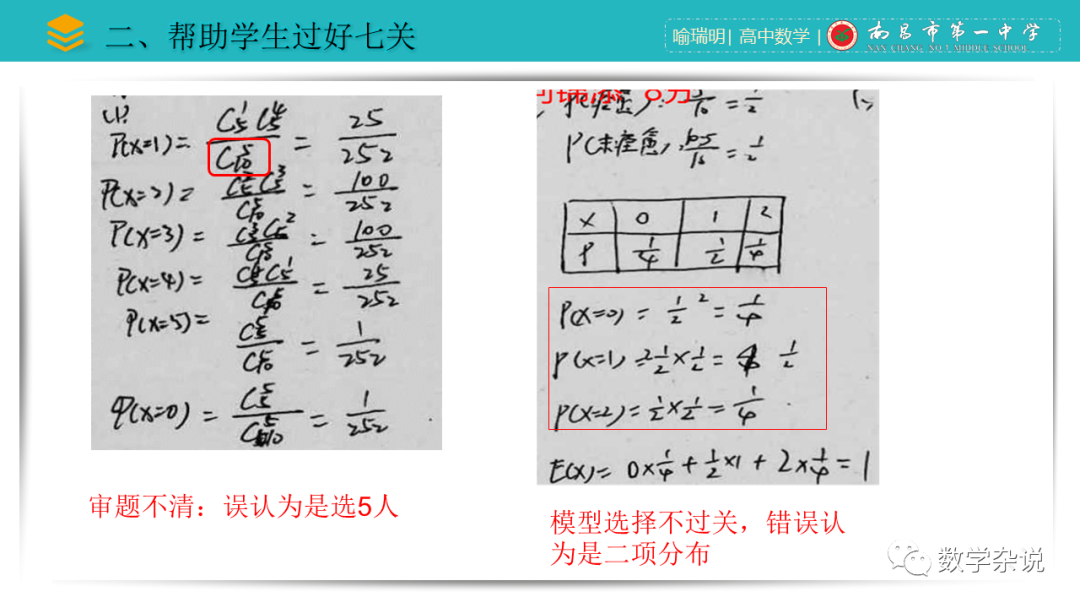 二、帮助学生过好七关
喻瑞明| 高中数学 |
南昌市第一中学
NAN CHANG NO.1 MIDDLE SCHOOL
(1)
P(X=1) = C₅¹C₅⁴ / C₁₀⁵ = 25/252
P(X=2) = C₅²C₅³ / C₁₀⁵ = 100/252
P(X=3) = C₅³C₅² / C₁₀⁵ = 100/252
P(X=4) = C₅⁴C₅¹ / C₁₀⁵ = 25/252
P(X=5) = C₅⁵ / C₁₀⁵ = 1/252
P(X=0) = C₅⁵ / C₁₀⁵ = 1/252
审题不清：误认为是选5人
= 1/2
= 1/2
X 0 1 2
P 1/4 1/2 1/4
P(X=0) = 1/2² = 1/4
P(X=1) = 2 1/2 × 1/2 = 1/2
P(X=2) = 1/2 × 1/2 = 1/4
E(X) = 0×1/4 + 1/2×1 + 2×1/4 = 1
模型选择不过关，错误认
为是二项分布
数学杂说